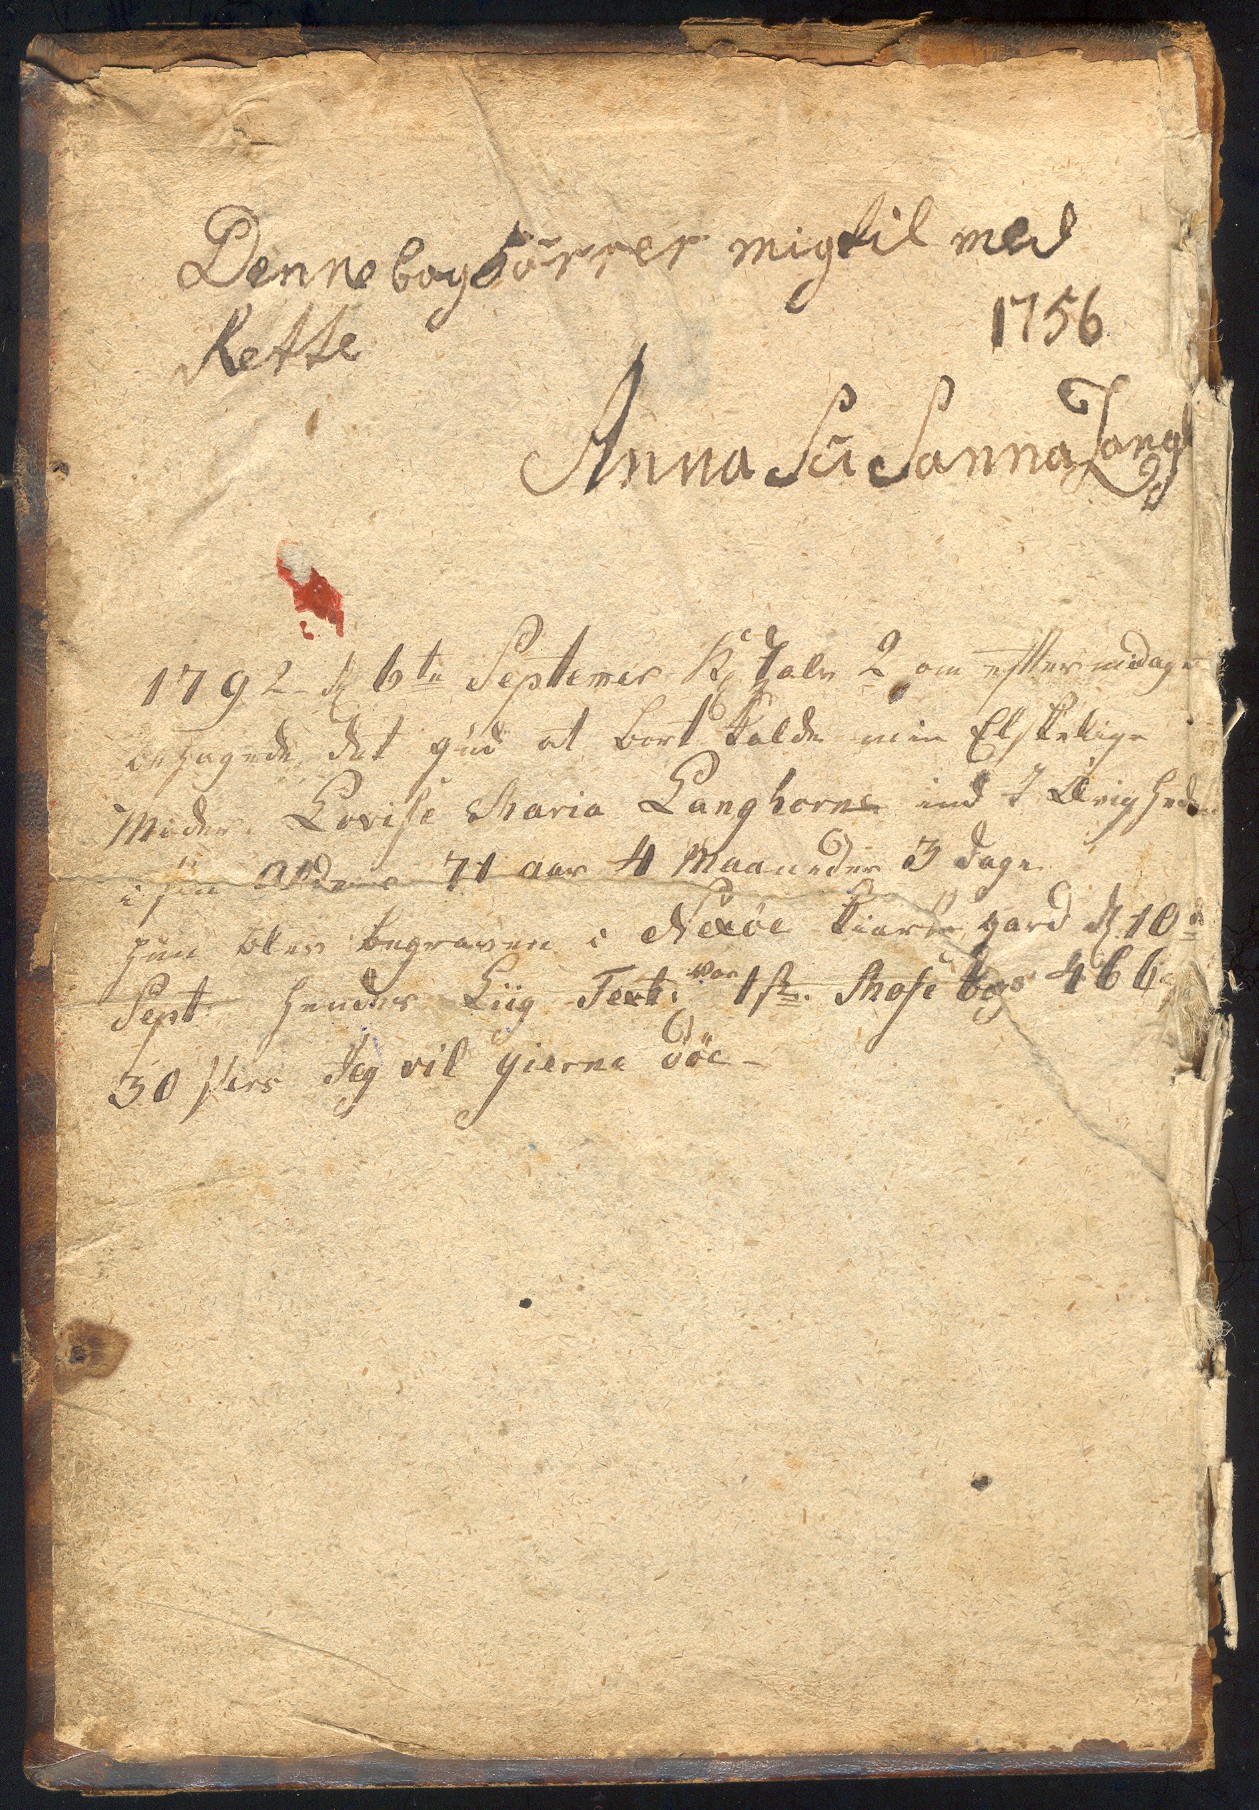 Denne bog hörrer mig til med
Rette 1756
Anna Su Sanna Lang
1792 d 6te Septemer Kl halv 2 om efftermidage
behagede det gud at bort kalde min Elskelige
Moder. Lovise Maria Langhorne ind i Ævighed
i sin Alders 71 aar 4 Maaneder 3 dage
hun blev begraven i Nexöe kiarke gard d 10de
Sept: hendes Liig Text: var 1ste. Mose bogs 46 C:
30 Vers Jeg vil gierne döe -